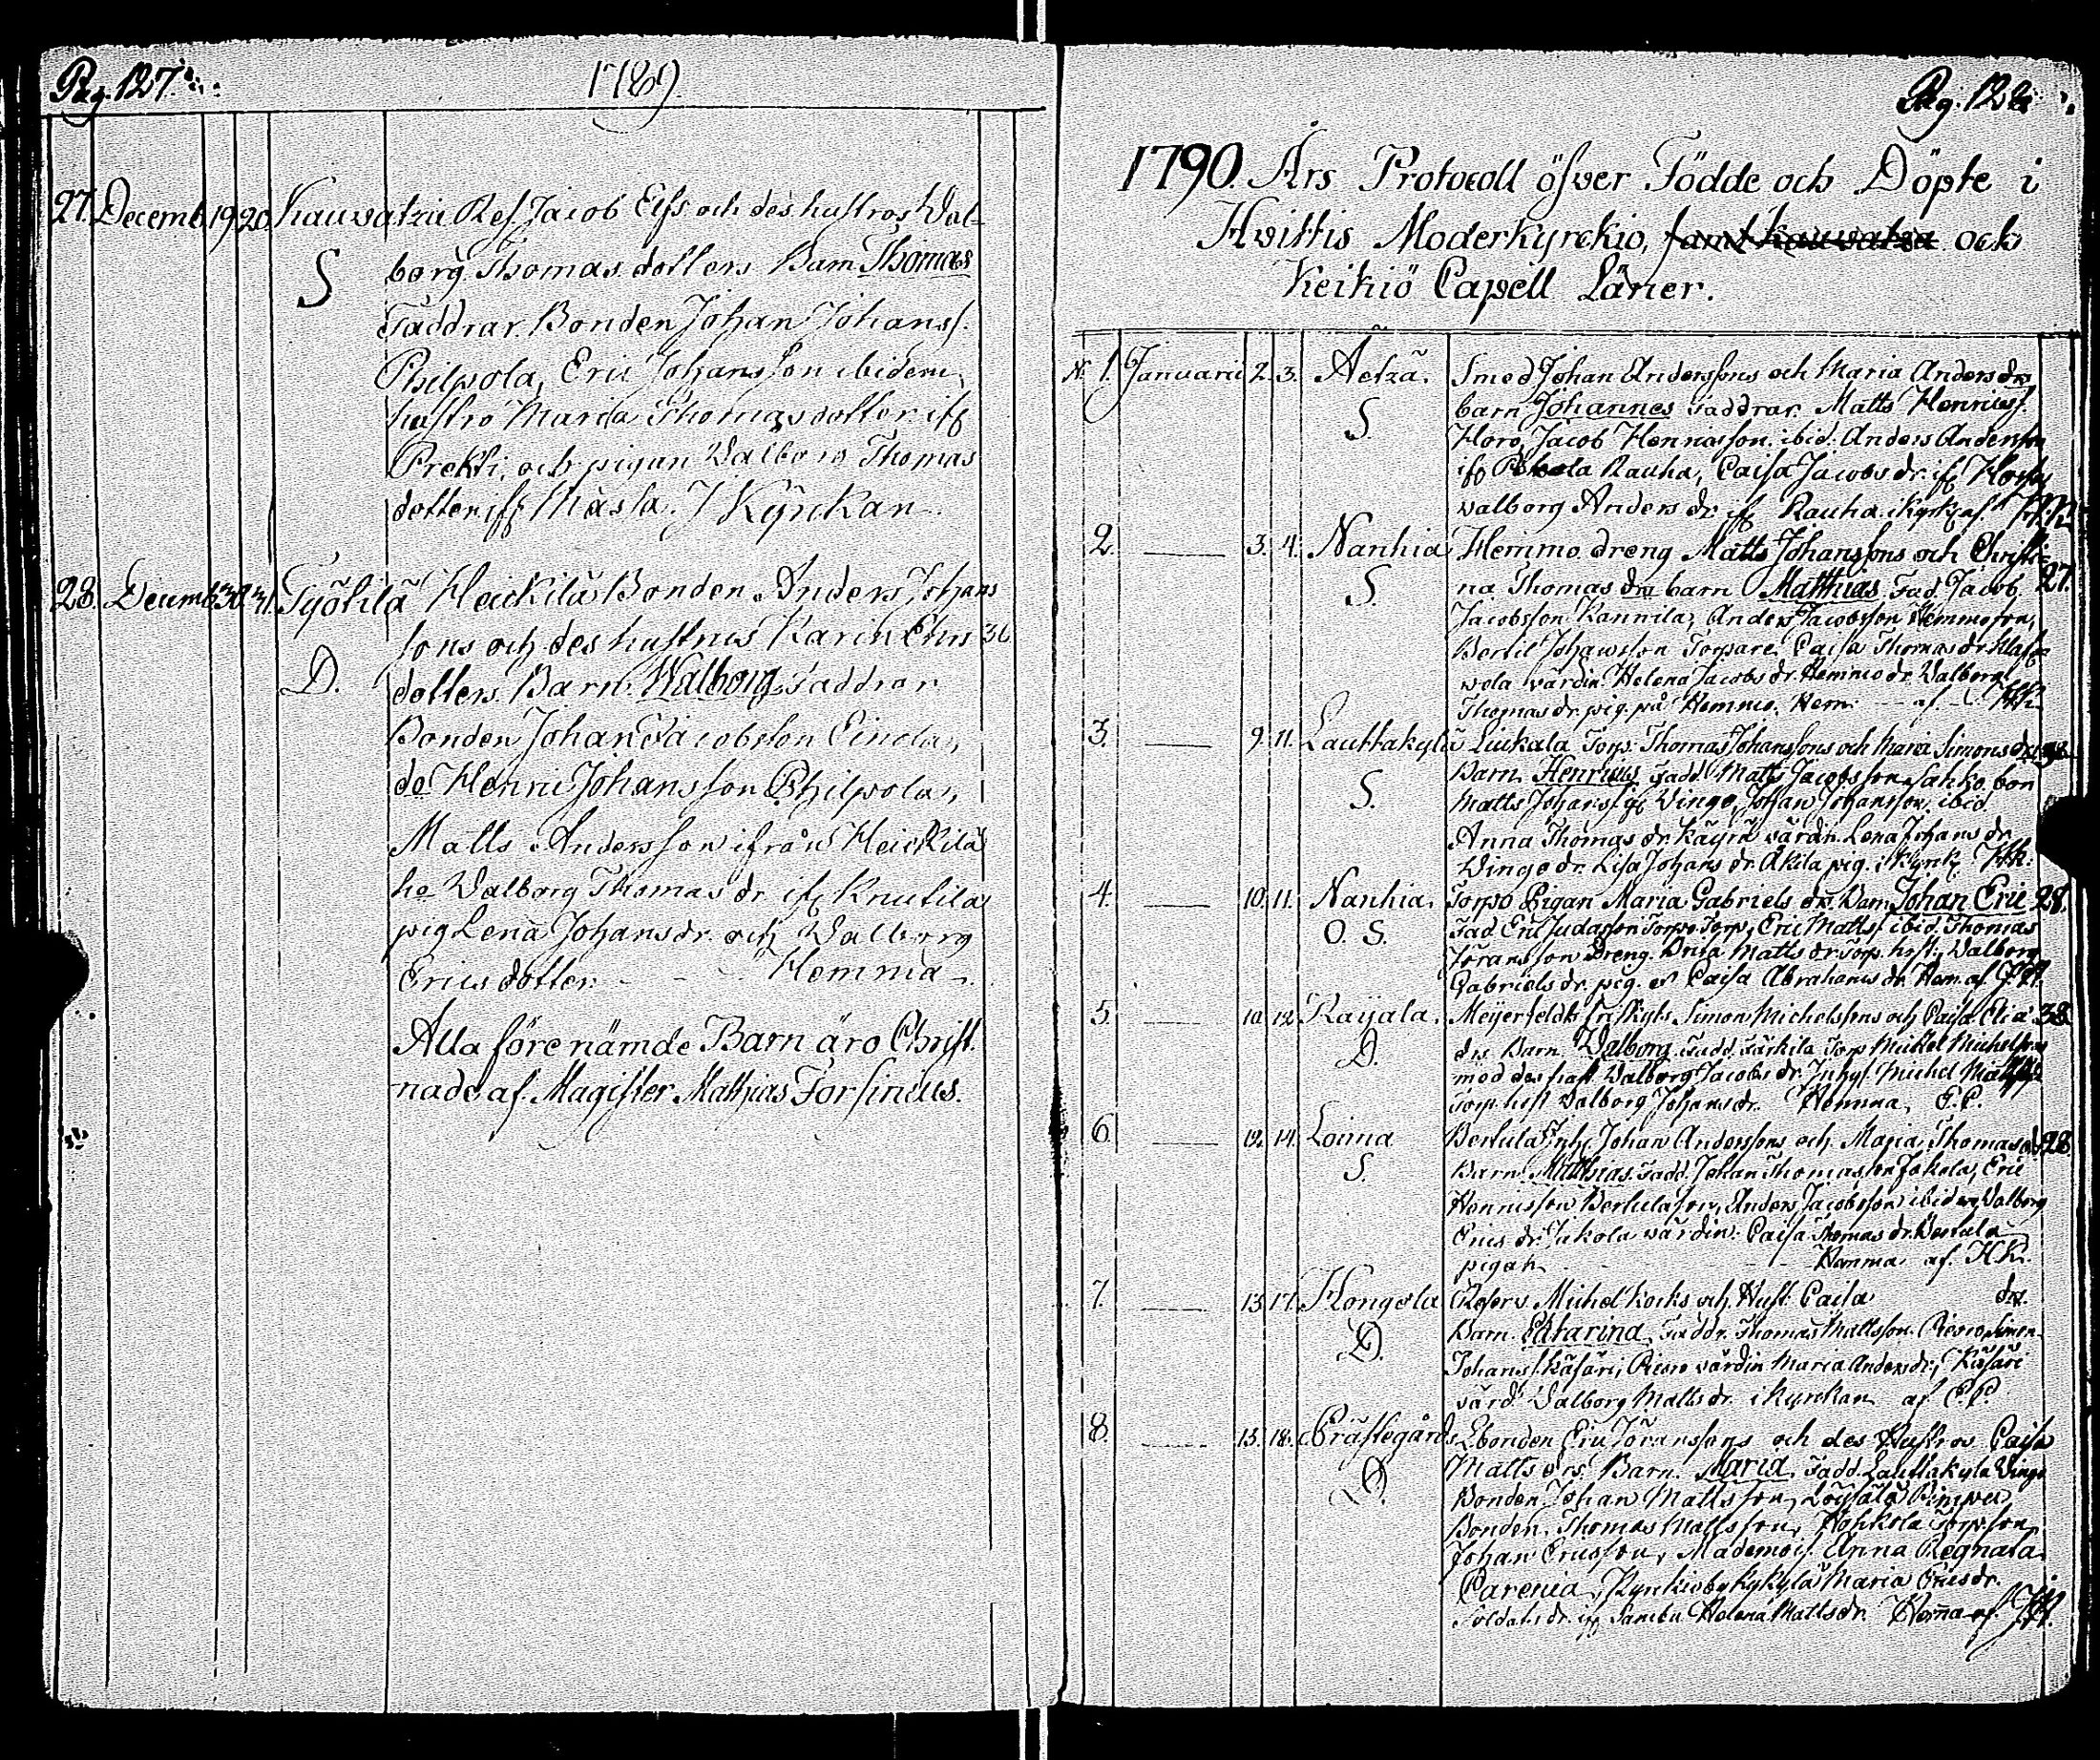 Pag. 127.
1789.
27. Decemb. 19 20. Kauvatza Ref. Jacob Elfs och des hustros Val-
S borg Thomas dotters Barn Thomas
Faddrar Bonden Johan Johanss.
Philpola, Eric Johansson ibidem
hustro Maria Thomasdotter ifr
Prekti, och pigan Valborg Thomas
dotter ifr Masla. I Kÿrckan
28. Decemb. 30. 31. Tyõlilä Heickilä Bonden Anders Johans
sons och des hustrus Karin Erics 36
D. dotters Barn Walborg Faddrar
Bonden Johan Jacobsson Einola,
do Henric Johansson Philpola,
Matts Andersson ifrån Heickilä
ho Valborg Thomas dr ifr Knutila
pig Lena Johansdr. och Valborg
Erics dotter. - - Hemma.
Alla förenämde Barn äro Christ-
nade af Magister Mathias Forsinius.
Pag. 128.
1790. Års Protocoll öfver Födde och Döpte i
Hvittis Moderkyrckio, samt Kauvatza och
Keikiö Capell Läner.
N. 1. Januarii 2. 3. Aetzä. Smed Johan Anderssons och Maria Anders drs
S. barn Johannes Faddrar. Matts Henricss.
Horo, Jacob Henricsson ibid. Anders Andersson
ifr Rauha, Caisa Jacobs dr. ifr
Valborg Anders dr. ifr Rauha. i Kyrk. af
2. — 3. 4. Nanhia Hemmo dreng Matts Johanssons och Christi-
S. na Thomas drs barn Matthias. Fad. Jacob 27.
Jacobsson Kannila, Anders Jacobsson Hemmo son,
Bertil Johansson Torpare, Caisa Thomas dr.
wola värdin. Helena Jacobs dr. Hemmo dr. Valborg
Thomas dr. pig. på Hemmo. Hem. — af
3. — 9. 11. Lauttakylä Liukala Torp. Thomas Johanssons och Maria Simons drs
S. Barn Henricus Fadd. Matts Jacobsson Sahko bon
Matts Johanss. ifr Vingo, Johan Johansson ibid.
Anna Thomas dr. Käyrä värdin. Lena Johans dr.
Vingo dr. Lisa Johans dr. Akila pig. i Kyrck. HK.
4. — 10. 11. Nanhia. Torpo Pigan Maria Gabriels drs. Barn Johan Eric 28.
O. S. Fad. Eric Judasson Torpo Torp, Eric Mattss. ibid. Thomas
Jöransson Dreng. Anna Matts dr. Torp. hust., Valborg
Gabriels dr. pig. och Caisa Abrahams dr. Hem. af
5. — 10. 12. Raÿala. Meÿerfeldts Simon Michelssons och Caisa Elia 38.
D. drs Barn Valborg Fadd. Särkilä Torp Mickel Michelsson
med des hust. Valborg Jacobs dr. Inhys. Michel
Torp. hust Valborg Johansdr. Hemma, E.P.
6. — 12. 14. Loima Bertula Inh. Johan Anderssons och Maria Thomas drs 28.
S. Barn Matthias. Fadd. Johan Thomasson Jakola, Eric
Henricsson Bertula son, Anders Jacobsson ibidem, Valborg
Erics dr. Jakola värdin. Caisa Thomas dr. Bertula
pigan - - Hemma af. H.K.
7. — 13. 17. Hongola Reserv. Michel Kocks och Hust. Caisa drs.
D. Barn Catarina, Faddr. Thomas Mattsson Rieso, Simon
Johanss. Käsäri, Rieso värdin Maria Anders dr., Käsäri
värd. Valborg Matts dr. i Kyrckan af E.P.
8. — 15. 18. Prästegårds Lbonden Eric Jöranssons och des Hustros Caisa
D. Matts drs. Barn Maria, Fadd. Lauttakyla Vingo
Bonden Johan Mattsson, Löysälä
Bonden Thomas Mattsson, Hohkola Torp. son
Johan Ericsson, Mademois. Anna Regnata
Carenia, Kyrkioby Maria Erics dr.
Soldats dr. ifr Helena Matts dr. Hemma af.